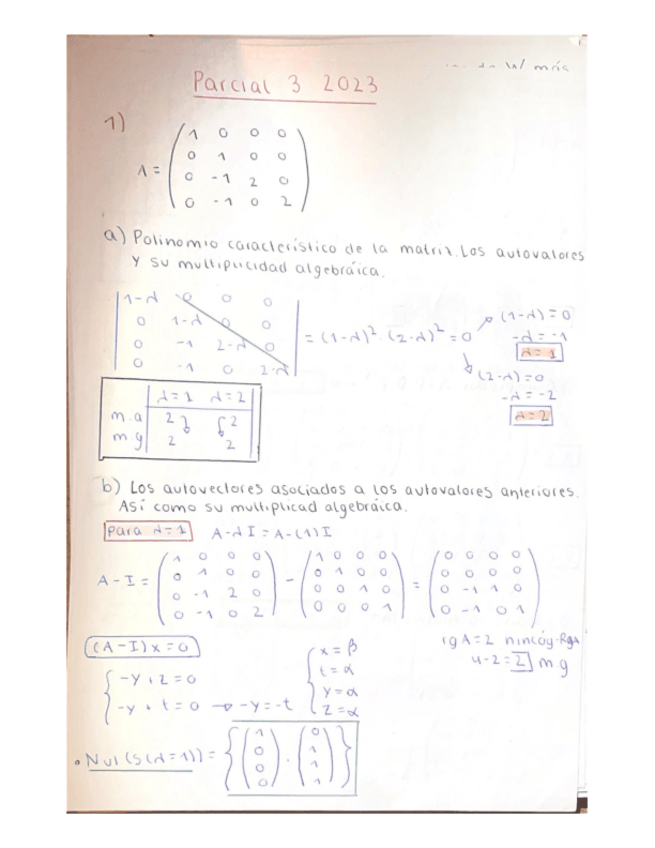 Parcial 3 2023
1)
A = ( 1 0 0 0
0 1 0 0
0 -1 2 0
0 -1 0 2 )
a) Polinomio característico de la matriz. Los autovalores
y su multiplicidad algebráica.
| 1-λ 0 0 0 |
| 0 1-λ 0 0 |
| 0 -1 2-λ 0 |
| 0 -1 0 2-λ |
= (1-λ)². (2-λ)² = 0
(1-λ) = 0
-λ = -1
λ = 1
(2-λ) = 0
-λ = -2
λ = 2
λ = 1 λ = 2
m.a 2 2
m.g 2 2
b) Los autovectores asociados a los autovalores anteriores.
Así como su multiplicad algebráica.
Para λ = 1 A-λI = A-(1)I
A-I = ( 1 0 0 0
0 1 0 0
0 -1 2 0
0 -1 0 2 ) - ( 1 0 0 0
0 1 0 0
0 0 1 0
0 0 0 1 ) = ( 0 0 0 0
0 0 0 0
0 -1 1 0
0 -1 0 1 )
(A-I) x = 0
rg A = 2 nincóg-RgA
4-2 = 2 m.g
-y + z = 0
-y + t = 0 → -y = -t
x = β
t = α
y = α
z = α
• Nul (S(λ=1)) = { ( 1 0 0 0 ) . ( 0 1 1 1 ) }